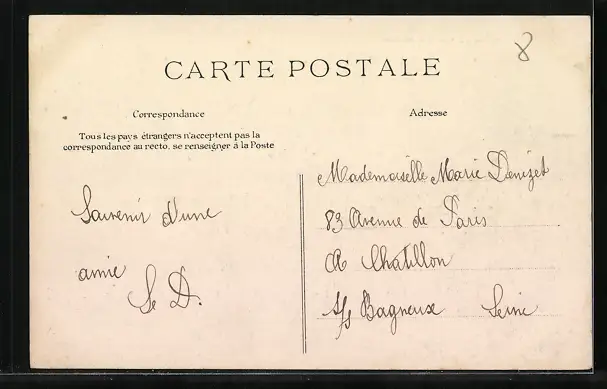 8
CARTE POSTALE
Correspondance
Tous les pays étrangers n'acceptent pas la
correspondance au recto, se renseigner à la Poste
Souvenir d'une
amie
Se D.
Adresse
Mademoiselle Marie Denizet
83 Avenue de Paris
A Chatillon
s/s Bagneux Seine